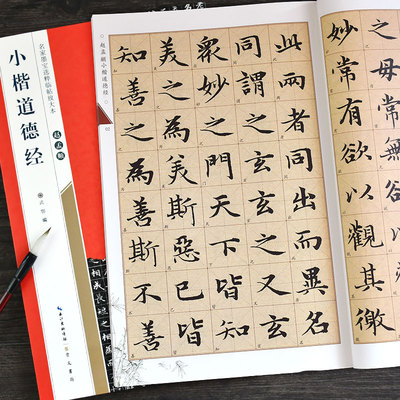 之母常
妙常有欲以觀其徼
此兩者同出而異名
同謂之玄玄之又玄
眾妙之門天下皆知
美之為美斯惡已皆
知善之為善斯不善
赵孟頫小楷道德经
02
名家墨宝选粹临帖放大本
小楷道德经
赵孟頫
编